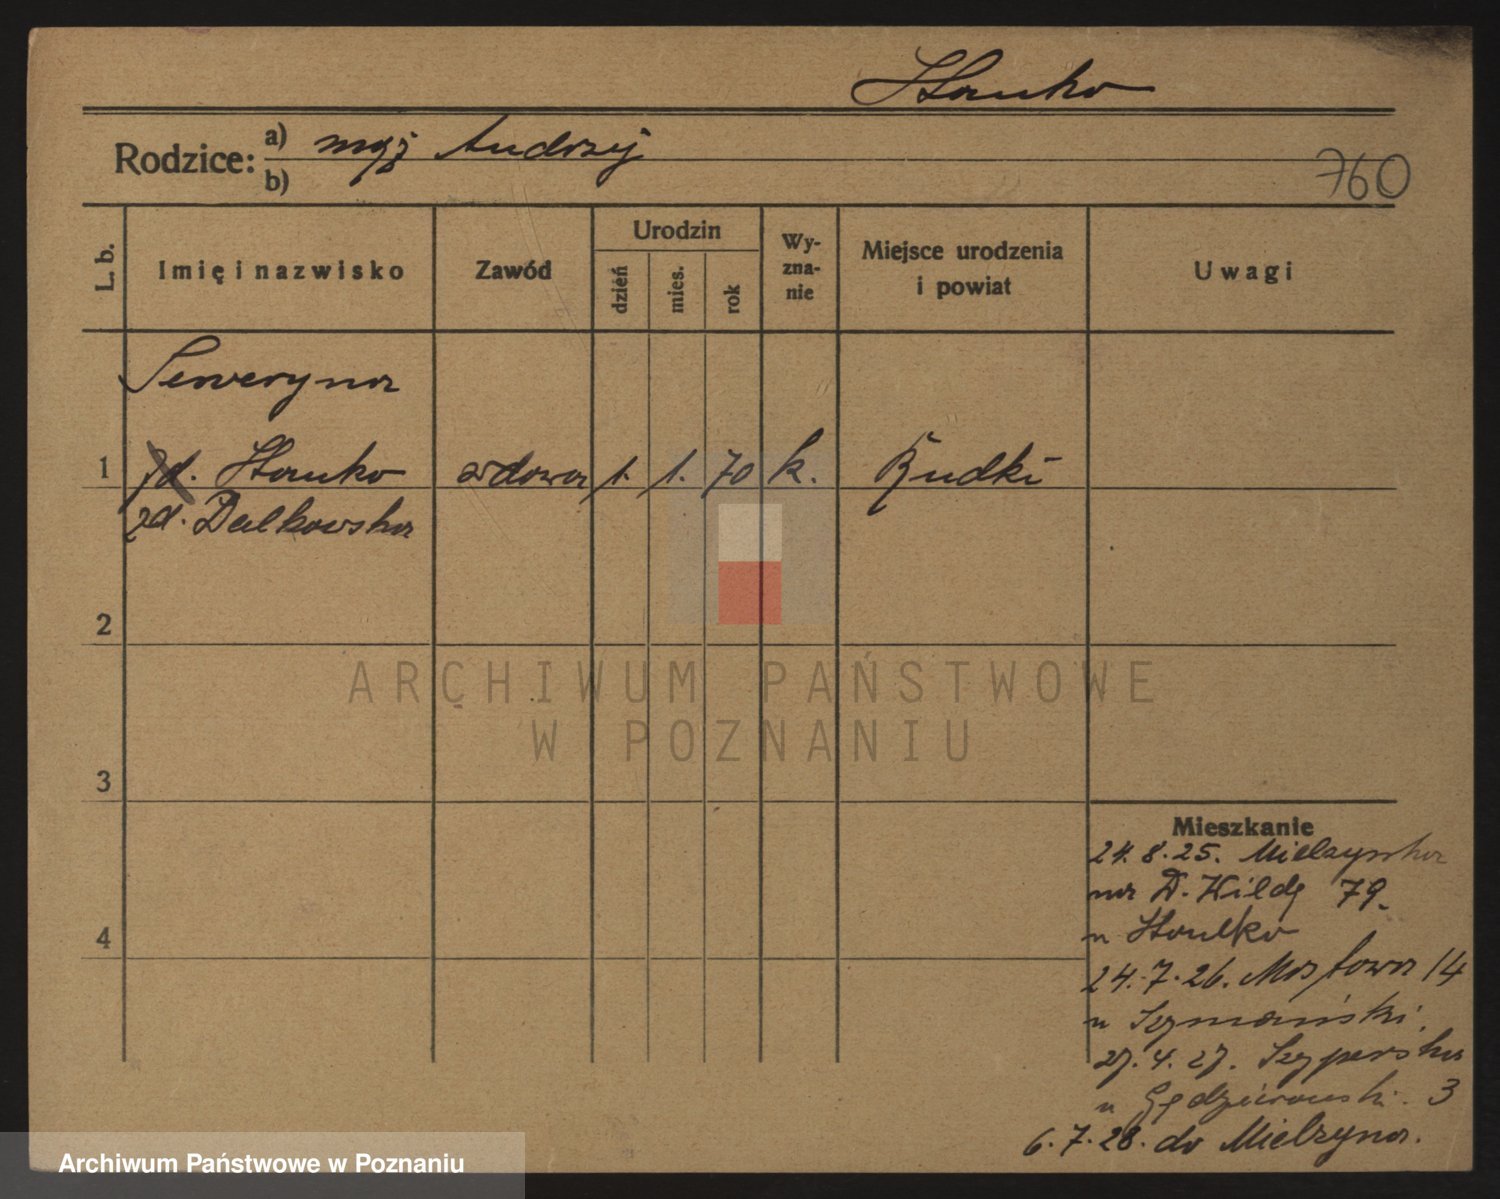 Hanko
Rodzice: a) mąż Andrzej
b)
760
L. b.
Imię i nazwisko
Zawód
Urodzin
dzień
mies.
rok
Wy-
zna-
nie
Miejsce urodzenia
i powiat
Uwagi
Seweryna
1 Hanko wdowa 1. 1. 70 k. Rudki
zd. Dalkowska
2
ARCHIWUM PAŃSTWOWE
W POZNANIU
3
4
Mieszkanie
24.8.25.
na D. Wildę 79.
u
24.7.26. Mostowa 14
u Szymański.
27.4.27. Szyperska
u 3
6.7.28. do Mielżyna.
Archiwum Państwowe w Poznaniu